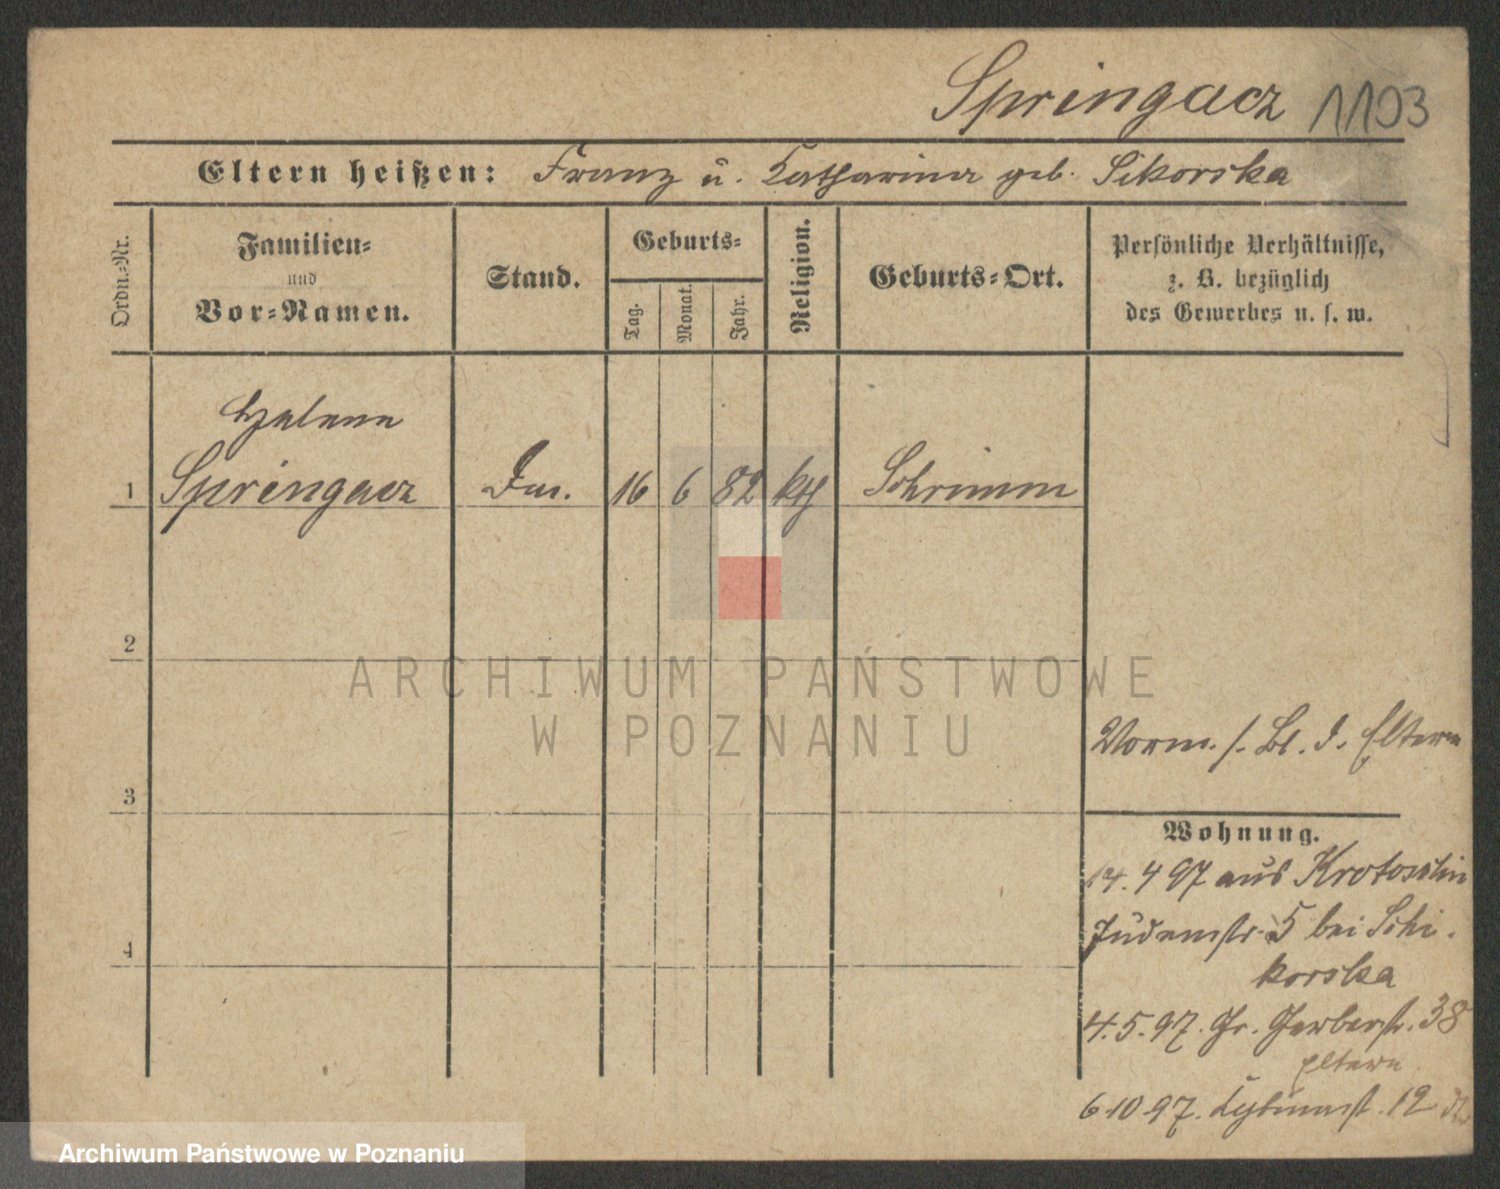 Springacz 1103
Eltern heißen: Franz u. Katharina geb. Sikorska
Ordn.-Nr.
Familien-
und
Vor-Namen.
Stand.
Geburts-
Tag.
Monat.
Jahr.
Religion.
Geburts-Ort.
Persönliche Verhältnisse,
z. B. bezüglich
des Gewerbes u. s. w.
Helene
1 Springacz 16 6 82 kth Schrimm
2
3
4
ARCHIWUM PAŃSTWOWE
W POZNANIU
Vorm. s. Bl. d. Eltern
Wohnung.
14. 4 97 aus Krotoschin
Judenstr. 5 bei Schi.
korska
4. 5. 97. Gr. Gerberstr. 38
Eltern
6 10 97. 12
Archiwum Państwowe w Poznaniu